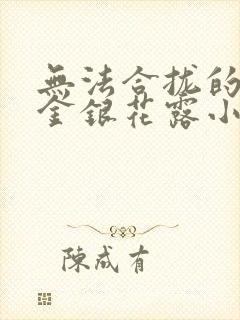 無法合拢的
金銀花露小
陳咸有